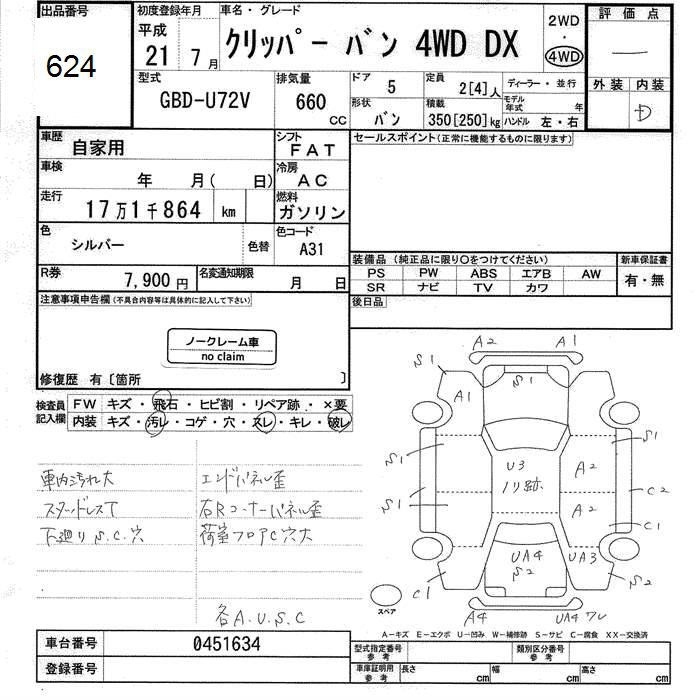 出品番号 初度登録年月 車名・グレード 2WD 評価点
624 平成 21 7月 クリッパー バン 4WD DX ・ 4WD —
型式 排気量 ドア 定員 ディーラー・並行 外装 内装
GBD-U72V 660 CC 5 2[4]人 モデル年式 年 D
形状 積載 ハンドル 左・右
バン 350[250]kg
車歴 自家用 シフト FAT セールスポイント(正常に機能するものに限ります)
車検 年 月( 日) 冷房 AC
走行 17万1千864 km 燃料 ガソリン
色 シルバー 色替 色コード A31
装備品 (純正品に限り○をつけてください) 新車保証書
R券 7,900円 名変通知期限 月 日 PS PW ABS エアB AW 有・無
SR ナビ TV カワ
注意事項申告欄(不具合内容等は具体的に記入して下さい) 後日品
ノークレーム車
no claim
修復歴 有〔箇所 〕
検査員記入欄 FW キズ・飛石・ヒビ割・リペア跡・×要
内装 キズ・汚レ・コゲ・穴・スレ・キレ・破レ
車内汚れ大 エンドパネル歪
スタッドレスT 右Rコーナーパネル歪
下廻りS.C.穴 荷室フロアC穴大
各A.U.S.C
A2 A1
S1 S1
A1
S1 U3 A2 S1
ノリ跡
S1 A2 C2
C1
UA4 UA3
S2
C1 S2
スペア A4 UA4 ワレ
A—キズ E—エクボ U—凹み W—補修跡 S—サビ C—腐食 XX—交換済
車台番号 0451634 型式指定番号 参考 類別区分番号 参考
登録番号 車庫証明用 参考 長さ cm 幅 cm 高さ cm